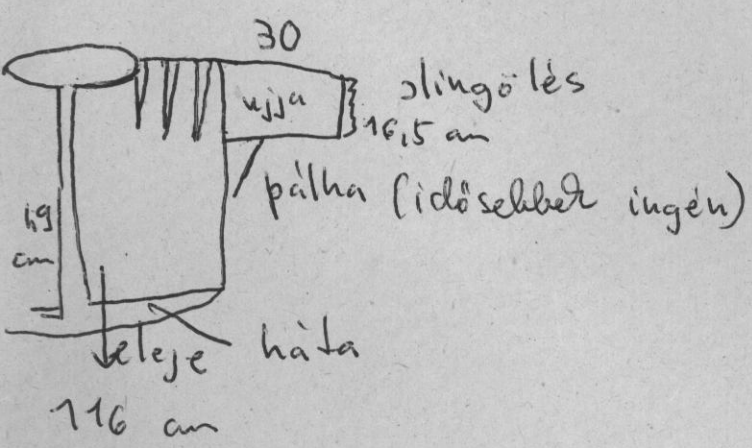 30
ujja
slingölés
16,5 cm
pálha (idősebbek ingén)
49
cm
eleje
háta
116 cm